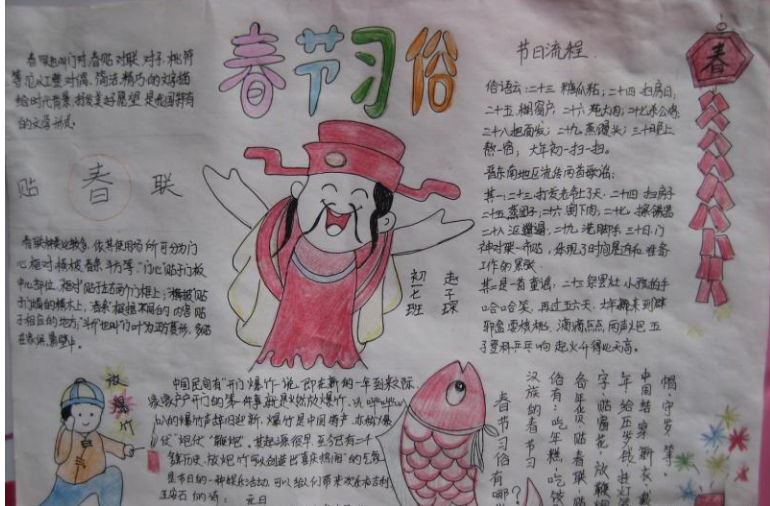 春节习俗
春联也叫门对、春贴、对联、对子、桃符
等,它以工整、对偶、简洁、精巧的文字描
绘时代背景,抒发美好愿望,是我国特有
的文学形式。
贴 春 联
春联种类比较多,依其使用场所,可分为门
心、框对、横披、春条、斗方等。"门心"贴于门板
中心部位,"框对"贴在左右两个门框上;"横披"贴
于门楣的横木上,"春条"根据不同的内容,贴
于相应的地方;"斗斤"也叫"门叶",为正方菱形,多贴
在家俱、影壁中。
节日流程
俗语云:二十三糖瓜粘;二十四扫房日;
二十五糊窗户;二十六炖大肉;二十七杀公鸡
二十八把面发;二十九蒸馒头;三十晚上
熬一宿;大年初一扭一扭。
晋东南地区流传两首歌谣:
其一:二十三打发老爷上了天;二十四扫房子
二十五
神对联一齐贴。体现了时间紧迫和准备
工作的紧张。
其二是一首童谣,
哈哈笑。再过五六天,大年就来到。
滴滴点点两声炮。五
子登科乒乓响,起火升得比天高。
赵子琛
初一七班
放爆竹
春
中国民间有"开门爆竹"一说。即在新的一年到来之际
家家户户开门的第一件事就是燃放爆竹,以哔哔叭
叭的爆竹声辞旧迎新。爆竹是中国特产,亦称"爆
仗"、"炮仗"、"鞭炮"。其起源很早,至今已有二千
多年历史。放炮竹可以创造出喜庆热闹的气氛
是节日的一种娱乐活动,可以给人们带来欢乐和吉利
王安石 元日
春节习俗有哪些?
汉族的春节习
俗有:吃年糕、吃饺
各年货、贴春联、贴
字、贴窗花、放鞭炮
年给压岁钱、
中国结、穿新衣、戴
帽、守岁等。